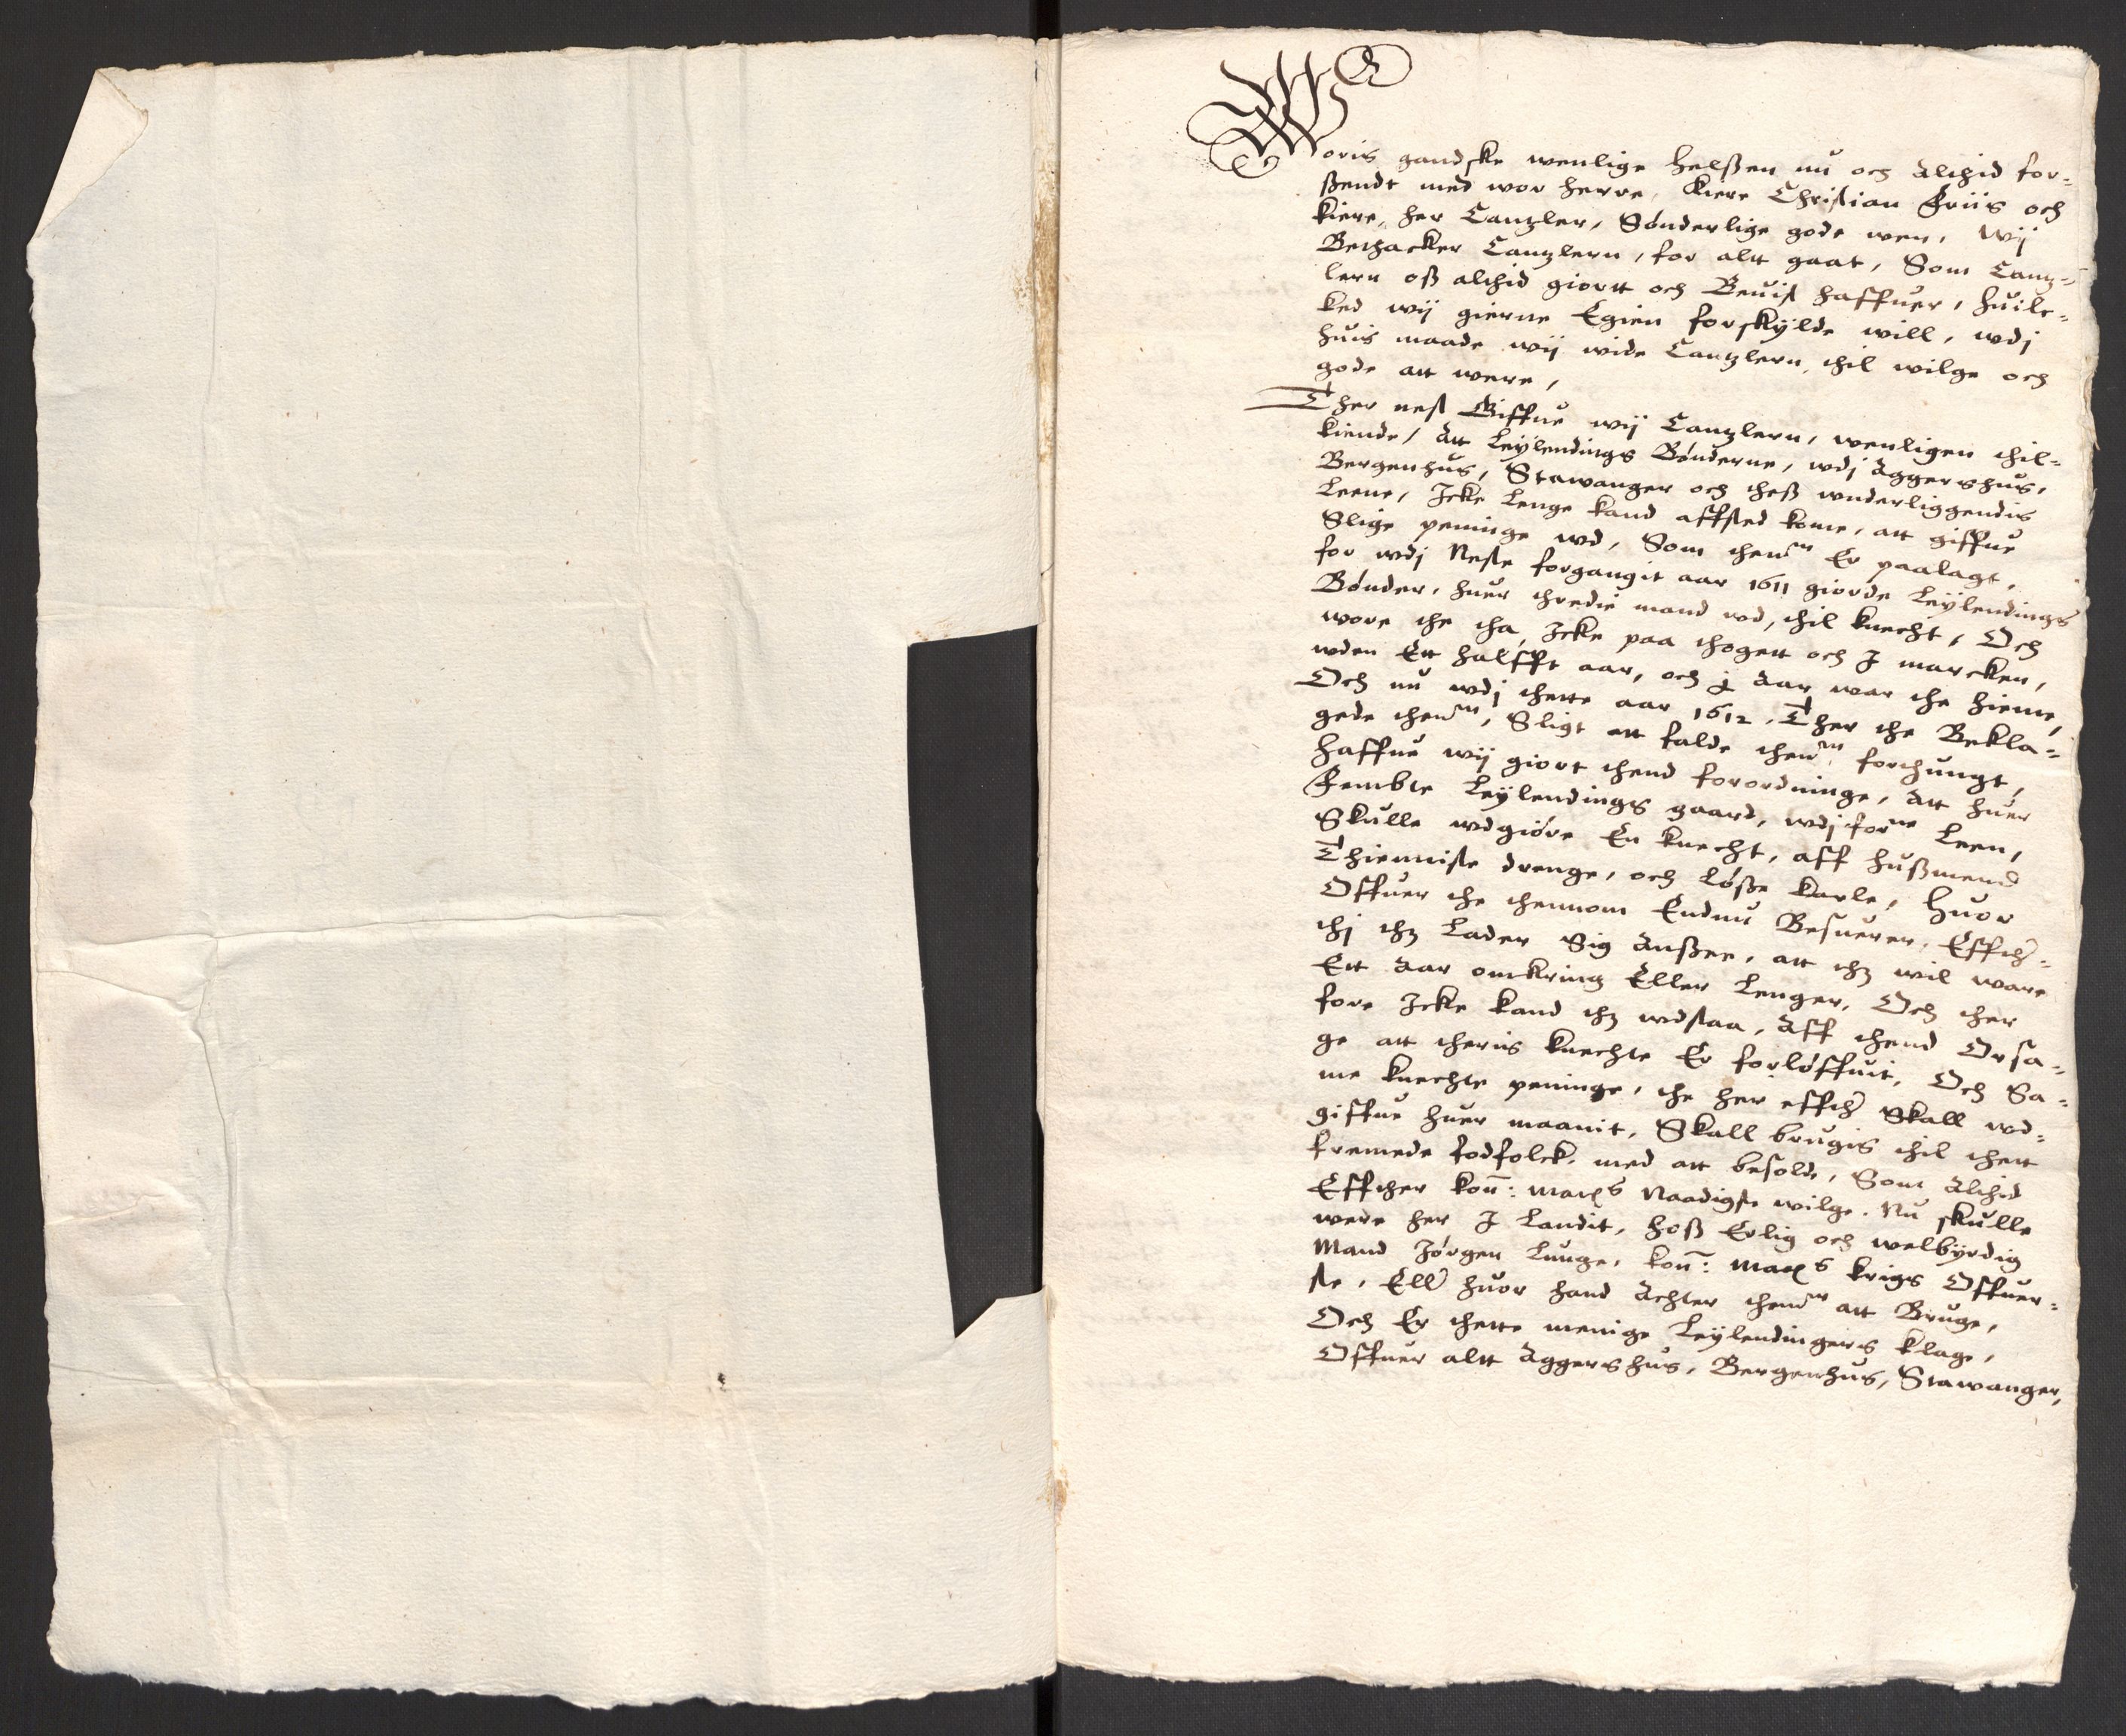 Woris gandske wenlige helßen nu och Althid for-
ßendt med wor herre, Kiere Christian Friis och
kiere, her Cantzler, Sønderlige gode wen, Wij
Bethacker Cantzlern, for altt gaat, Som Cantz-
lern oß althid giortt och Beuist haffuer, huilc-
ked wij gierne Egien forskylde will, wdj
huis maade wij wide Cantzlern, thil wilge och
gode att were,
Ther nest Giffue wij Cantzlern, wenligen thil-
kiende, Att Leÿlendings Bønderne, wdj Aggershus,
Bergenhus, Stawanger och theß wnderliggendis
Leene, Icke Lenge kand affsted kome, att giffue
Slige peninge wd, Som thenm Er paalagt,
for wdj Neste forgangit aar 1611 giorde Leÿlendings
Bønder, huer thredie mand wd, thil knecht, Och
wore the tha, Icke paa thogett och I marcken,
wden Ett halfft aar, och j Aar war the hieme,
Och nu wdj thette aar 1612. Ther the Bekla-
gede thenm, Sligt att falde thenm forthungt,
haffue wij giort thend forordninge, Att huer
Fembte Leÿlendings gaard, wdj forne Leen,
Skulle wdgiøre En knecht, aff hußmend
Thienniste drenge, och Løße karle, huor
Offuer the thennom Endnu Besuerer, Effth-
thj thz Lader Sig Anßee, att thz wil ware
Ett Aar omkring Eller Lenger, Och ther
fore Icke kand thz wdstaa, Aff thend Orsa-
ge att theris knechte Er forløffuit, Och Sa-
me knechte peninge, the her effth Skall wd-
giffue huer maanit, Skall brugis thil thett
fremede fodfolck, med att besolde, Som Althid
Effther kon: maits Naadigste wilge. Nu skulle
were her I Landit, hoß Erlig och welbÿrdig
Mand Jørgen Lunge, kon: Maits krigs Offuer-
ste, Ell huor hand Achter thenm att Bruge,
Och Er thette menige Leÿlendingers klage,
Offuer altt Aggershus, Bergenhus, Stawanger,